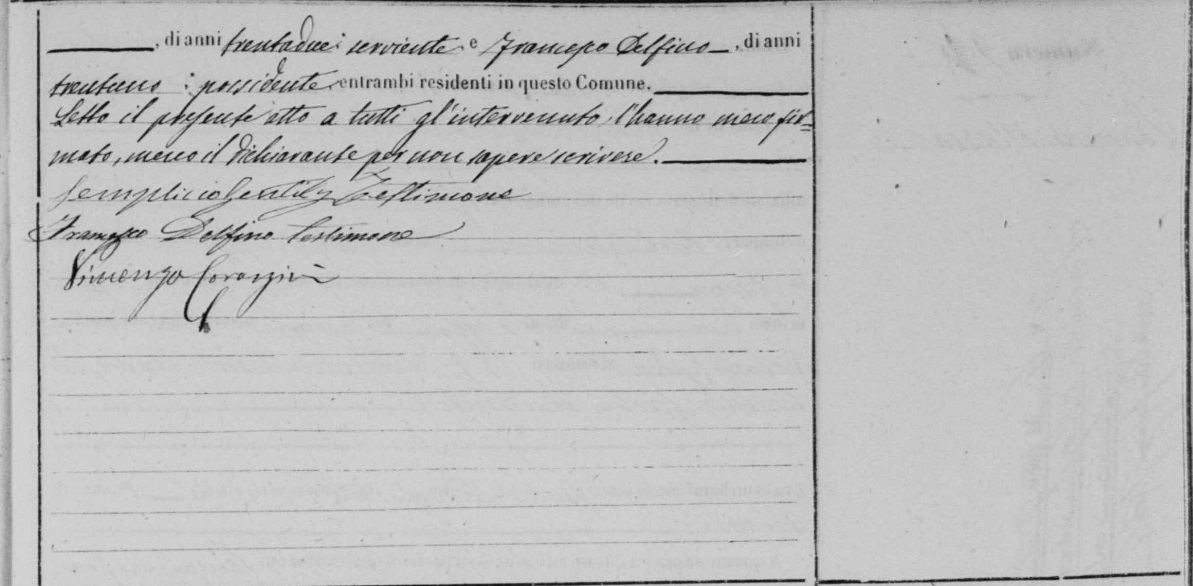 , di anni trentadue: serviente e Francesco Delfino, di anni
trentuno: possidente entrambi residenti in questo Comune.
Letto il presente atto a tutti gl'intervenuto, l'hanno meco fir=
mato, meno il dichiarante per non sapere scrivere.
Semplicio Gentily Testimone
Francesco Delfino testimone
Vincenzo Corazzini